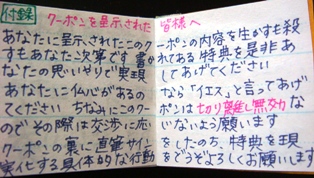 付録 クーポンを呈示された 皆様へ
あなたに呈示されたこのク ーポンの内容を生かすも殺
すもあなた次第です 書か れてある特典を是非あ
なたの思いやりで実現 してあげてください
あなたに仏心がある なら「イエス」と言ってあげ
てください ちなみにこのクー ポンは切り離し無効な
ので その際は交渉に応 じないよう願います
クーポンの裏に直筆サイン をしたのち、特典を現
実化する具体的な行動 をどうぞよろしくお願いします